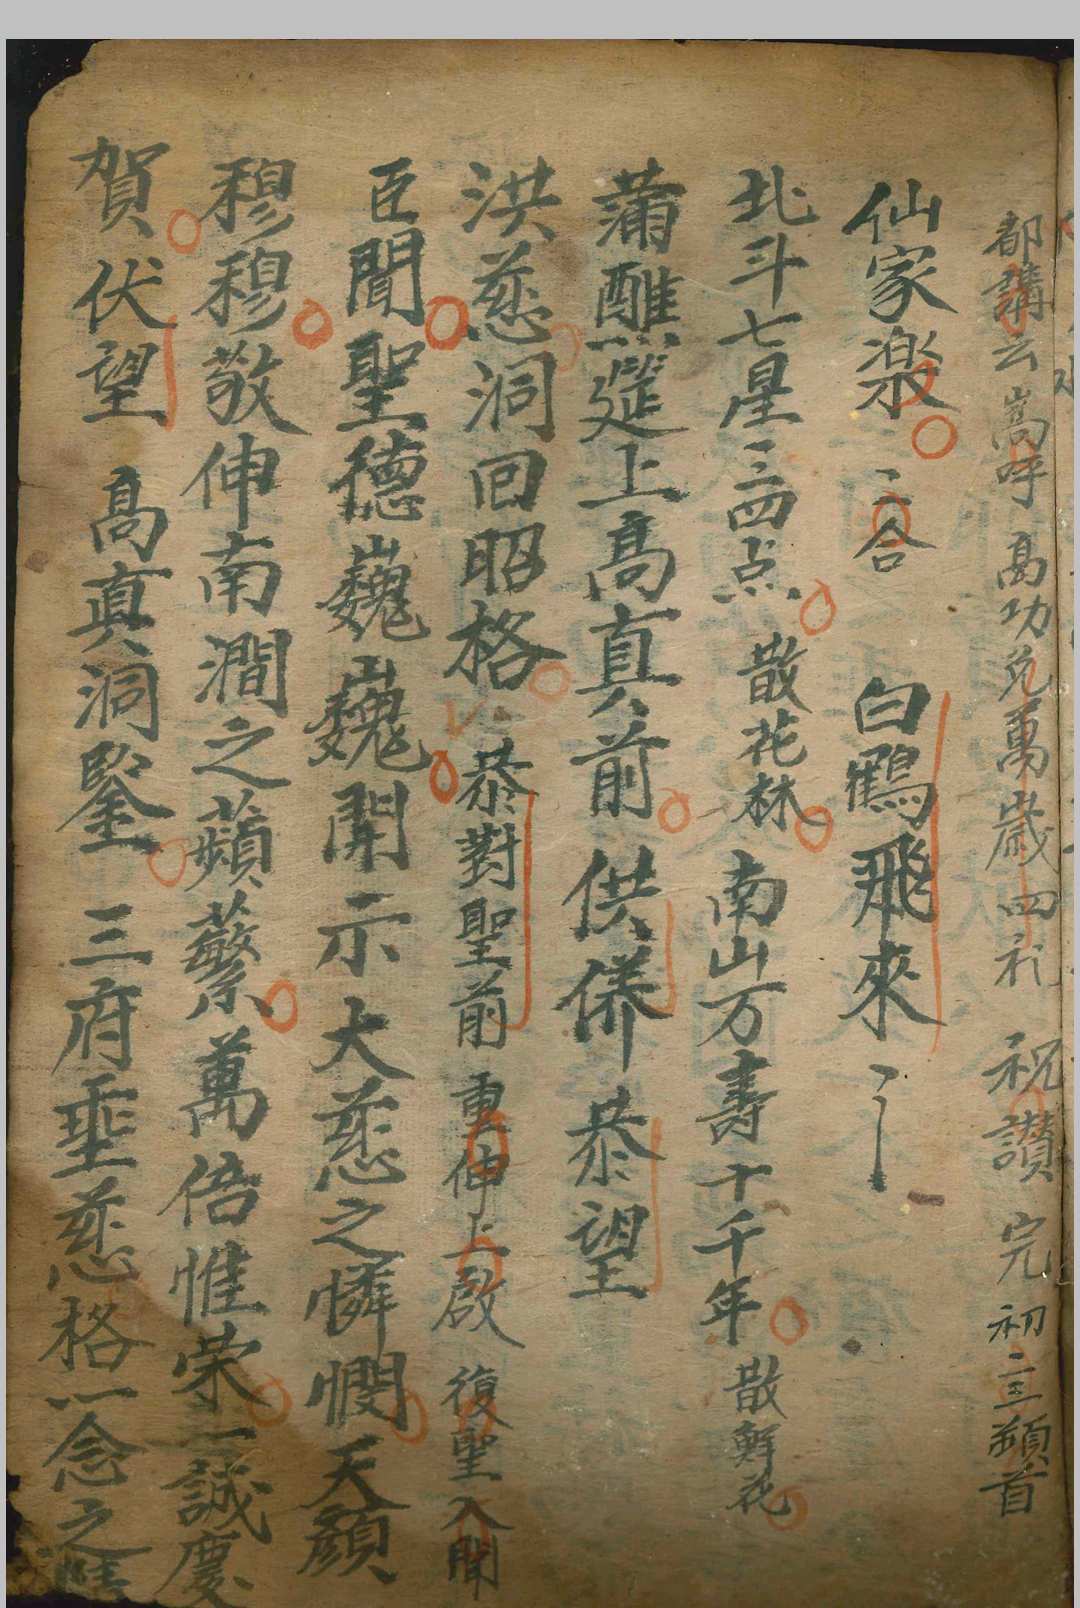 都講云嵩呼 高功免萬歲四礼 祝讚 完 初二三頓首
仙家楽 二合 白鶴飛來 〻
北斗七星三四点 散花林 南山万壽十千年 散鮮花
蒲醮筵上高真前 供俻 恭望
洪慈洞回昭格 恭對聖前 重伸上啟 復聖入聞
臣聞聖德巍巍開示大慈之憐憫天顏
穆穆敬伸南澗之蘋蘩萬倍惟荣一誠慶
賀伏望 高真洞鑒 三府垂慈格一念之